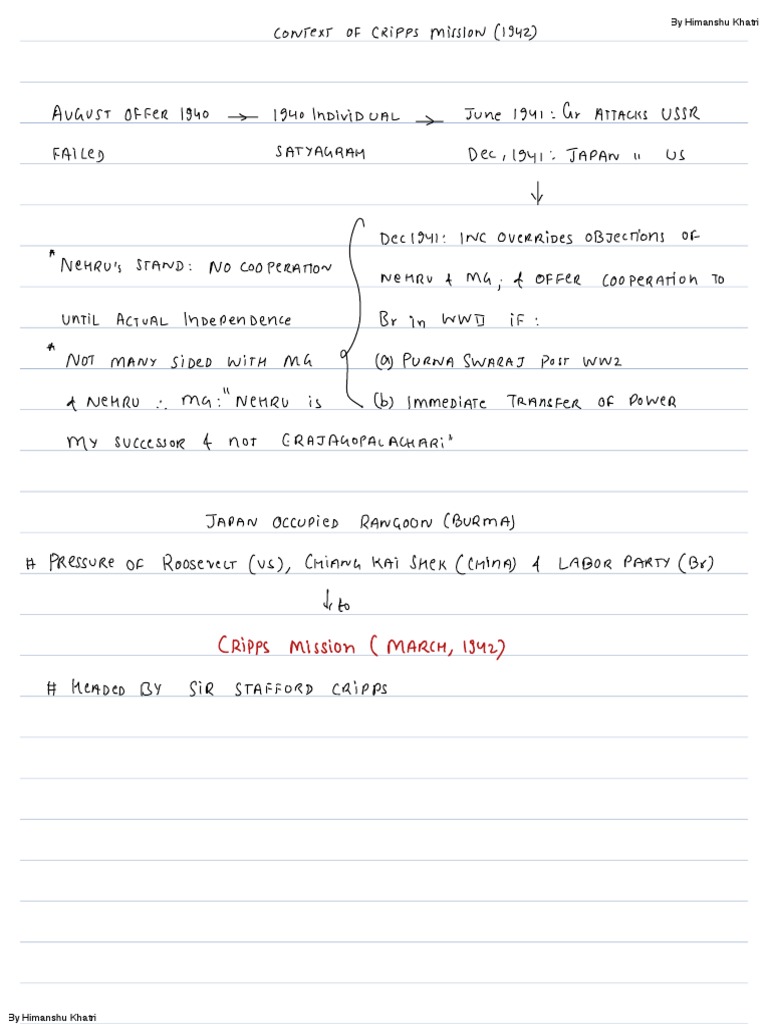 By Himanshu Khatri
CONTEXT OF CRIPPS MISSION (1942)
AUGUST OFFER 1940 → 1940 INDIVIDUAL → June 1941: Gr ATTACKS USSR
FAILED SATYAGRAH Dec, 1941: JAPAN " US
↓
Dec 1941: INC OVERRIDES OBJECTIONS OF
* NEHRU'S STAND: NO COOPERATION
NEHRU & MG; & OFFER COOPERATION TO
UNTIL ACTUAL INDEPENDENCE
Br in WWII IF:
* NOT MANY SIDED WITH MG
(a) PURNA SWARAJ POST WW2
& NEHRU ∴ MG: "NEHRU is
(b) Immediate TRANSFER OF POWER
MY SUCCESSOR & NOT CRAJAGOPALACHARI"
JAPAN OCCUPIED RANGOON (BURMA)
# PRESSURE OF ROOSEVELT (US), CHIANG KAI SHEK (CHINA) & LABOR PARTY (Br)
↓ to
CRIPPS MISSION (MARCH, 1942)
# HEADED BY SIR STAFFORD CRIPPS
By Himanshu Khatri